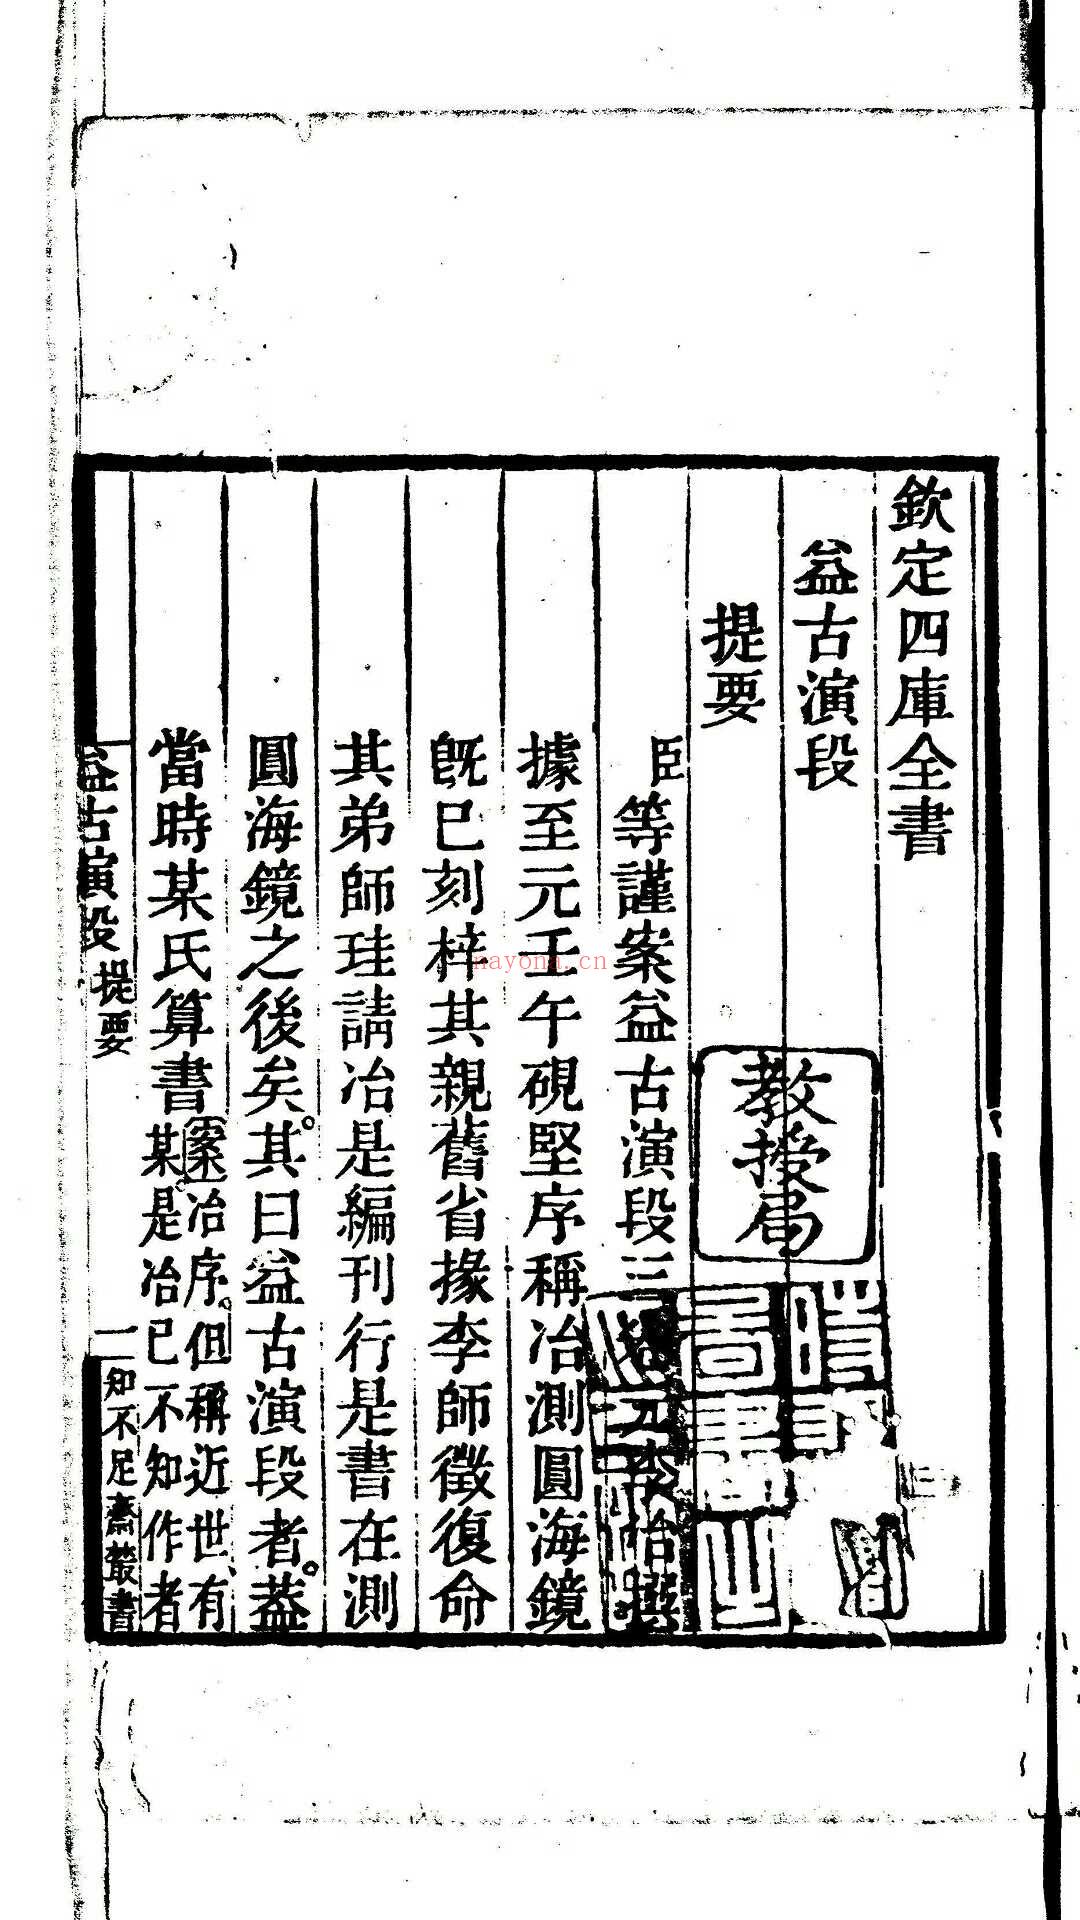 欽定四庫全書
益古演段
提要
教授局
臣等謹案益古演段三卷元李冶撰
據至元壬午硯堅序稱冶測圓海鏡
既已刻梓其親舊省掾李師徵復命
其弟師珪請冶是編刊行是書在測
圓海鏡之後矣其曰益古演段者蓋
當時某氏算書
案冶序但稱近世有
某是冶已不知作者
益古演段 提要
一 知不足齋叢書
nayona.cn